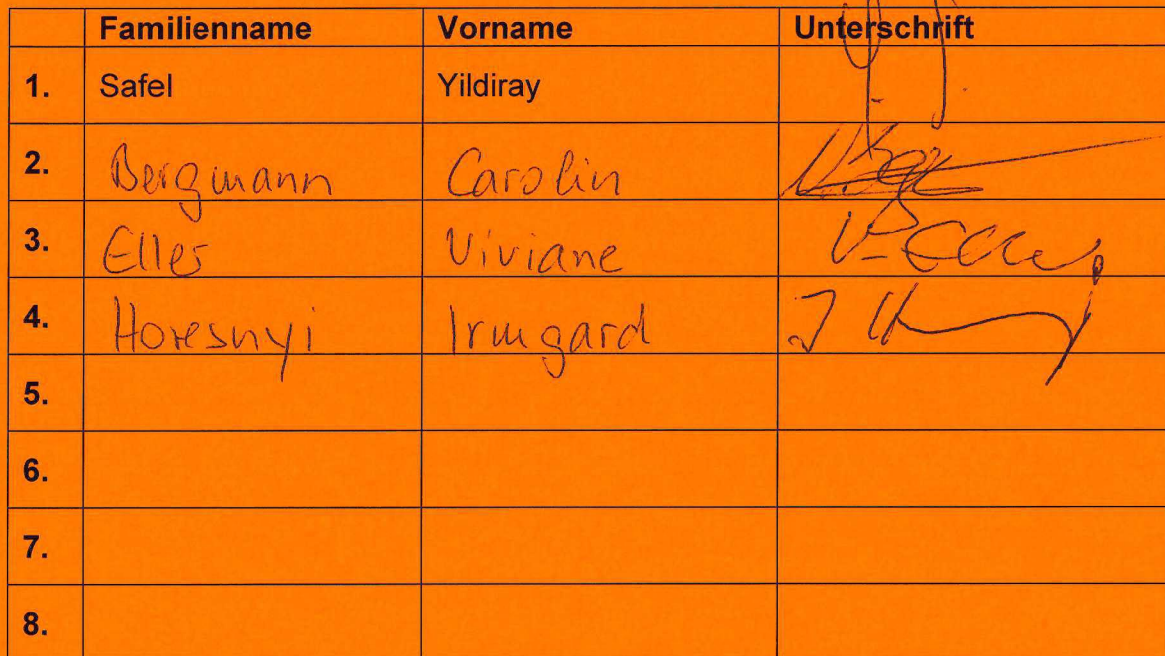 Familienname Vorname Unterschrift
1. Safel Yildiray
2. Bergmann Carolin
3. Eller Viviane
4. Horesnyi Irmgard
5.
6.
7.
8.